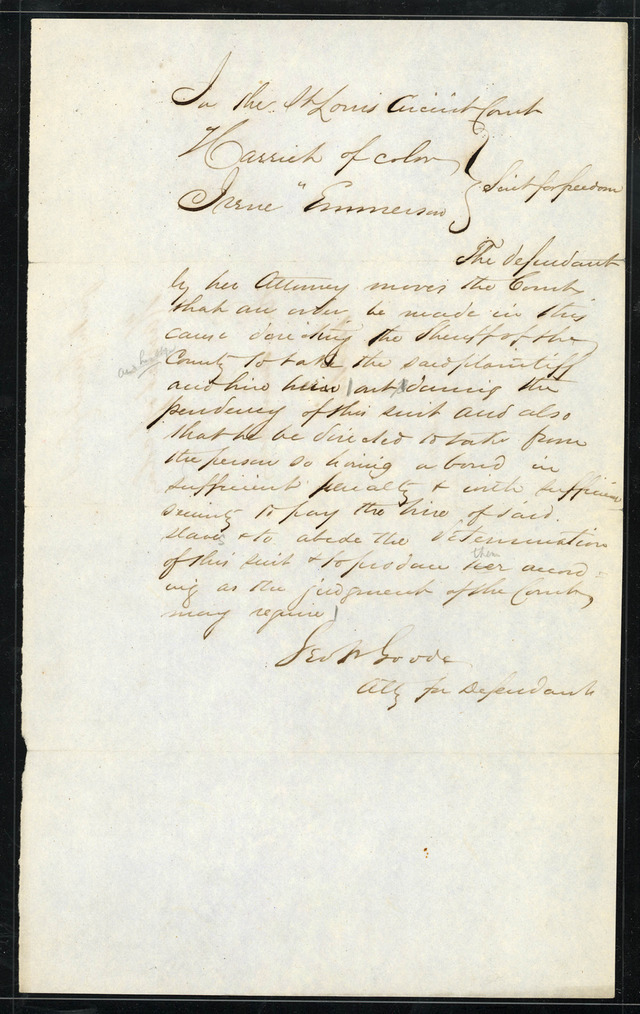 In the St Louis Circuit Court
Harriet of color
Irene " Emmerson } Suit for freedom
The defendant
by her Attorney moves the Court
that an order be made in this
cause directing the Sheriff of the
County to take the said plaintiff
and hire out during the
pendency of this suit and also
that he be directed to take from
the person so hiring a bond in
sufficient penalty & with sufficient
security to pay the hire of said
slave & to abide the determination
them
of this suit & to produce her accord-
ing as the judgment of the Court
may require
Geo W Goode
Atty for Defendant